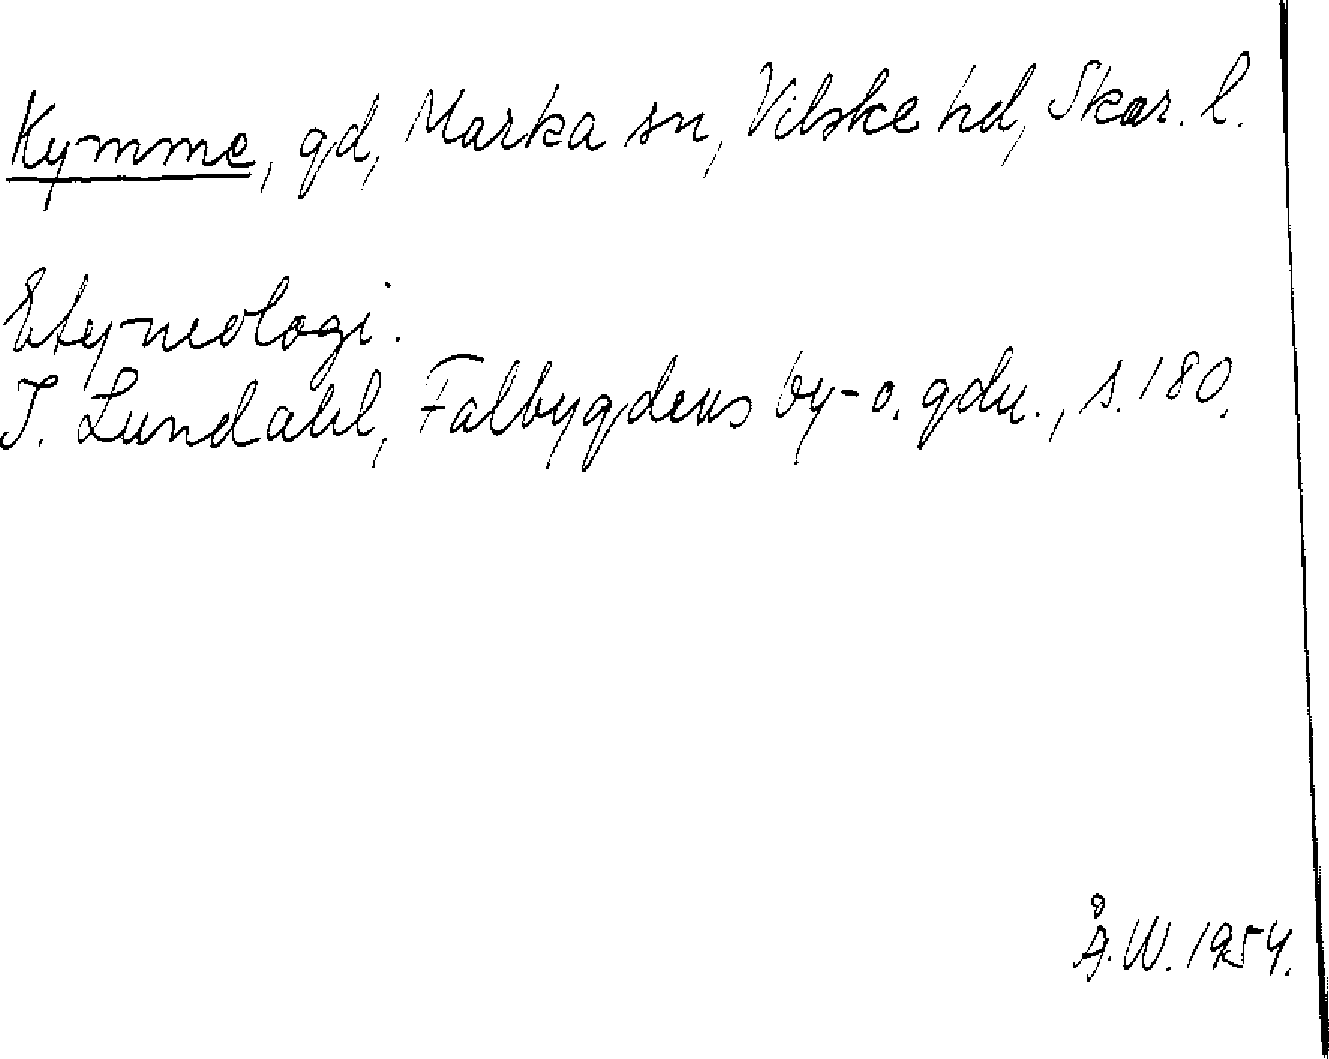 Kymme, gd, Marka sn, Vilske hd, Skar. l.
Etymologi.
I. Lundahl, Falbygdens by- o. gdn., s. 180.
Å.W. 1954.